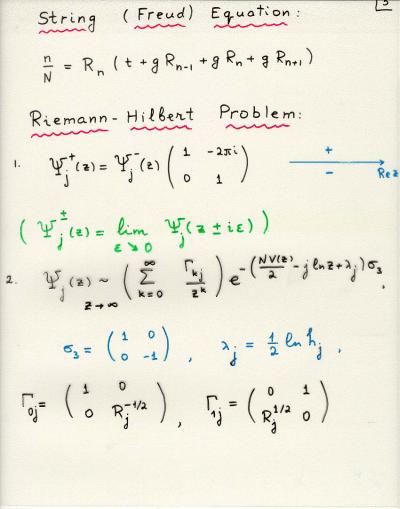 String (Freud) Equation:
n/N = Rₙ (t + g Rₙ₋₁ + g Rₙ + g Rₙ₊₁)
Riemann-Hilbert Problem:
1. Ψⱼ⁺(z) = Ψⱼ⁻(z) ( 1 -2πi ; 0 1 ) + - Re z
( Ψⱼ^±(z) = lim_{ε↘0} Ψⱼ(z ± iε) )
2. Ψⱼ(z) ~_{z→∞} ( ∑_{k=0}^{∞} Γ_{kj}/z^k ) e^{-(NV(z)/2 - j ln z + λⱼ)σ₃},
σ₃ = ( 1 0 ; 0 -1 ) , λⱼ = 1/2 ln hⱼ ,
Γ₀ⱼ = ( 1 0 ; 0 Rⱼ^{-1/2} ) , Γ₁ⱼ = ( 0 1 ; Rⱼ^{1/2} 0 )